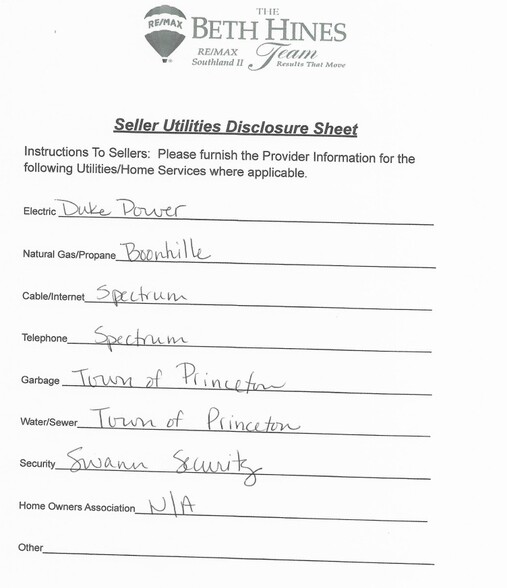 THE
RE/MAX
BETH HINES
RE/MAX Team
Southland II Results That Move
Seller Utilities Disclosure Sheet
Instructions To Sellers: Please furnish the Provider Information for the
following Utilities/Home Services where applicable.
Electric Duke Power
Natural Gas/Propane Boonhille
Cable/Internet Spectrum
Telephone Spectrum
Garbage Town of Princeton
Water/Sewer Town of Princeton
Security Swann Security
Home Owners Association N/A
Other